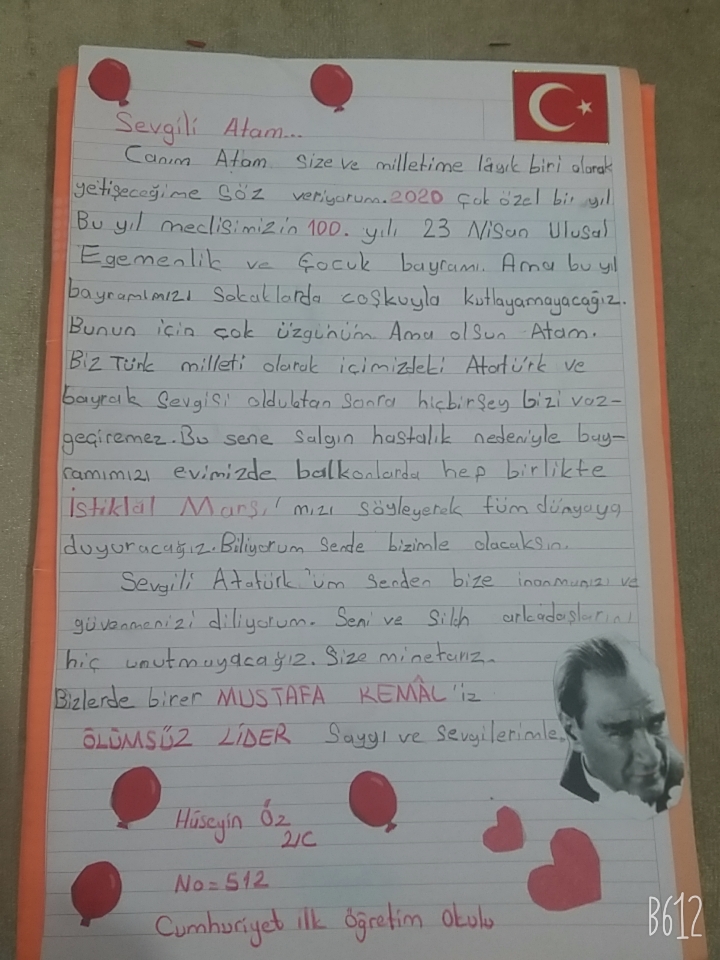 Sevgili Atam...
Canım Atam size ve milletime lâyık biri olarak
yetişeceğime söz veriyorum. 2020 çok özel bir yıl
Bu yıl meclisimizin 100. yılı 23 Nisan Ulusal
Egemenlik ve Çocuk bayramı. Ama bu yıl
bayramımızı sokaklarda coşkuyla kutlayamayacağız.
Bunun için çok üzgünüm. Ama olsun Atam.
Biz Türk milleti olarak içimizdeki Atatürk ve
bayrak sevgisi olduktan sonra hiçbirşey bizi vaz-
geçiremez. Bu sene salgın hastalık nedeniyle bay-
ramımızı evimizde balkonlarda hep birlikte
İstiklâl Marşı'mızı söyleyerek tüm dünyaya
duyuracağız. Biliyorum sende bizimle olacaksın.
Sevgili Atatürk'üm senden bize inanmanızı ve
güvenmenizi diliyorum. Seni ve silah arkadaşlarını
hiç unutmayacağız. Size minetarız.
Bizlerde birer MUSTAFA KEMÂL'iz
ÖLÜMSÜZ LİDER Saygı ve sevgilerimle.
Hüseyin Öz
2/C
No=512
Cumhuriyet ilk öğretim Okulu
B612